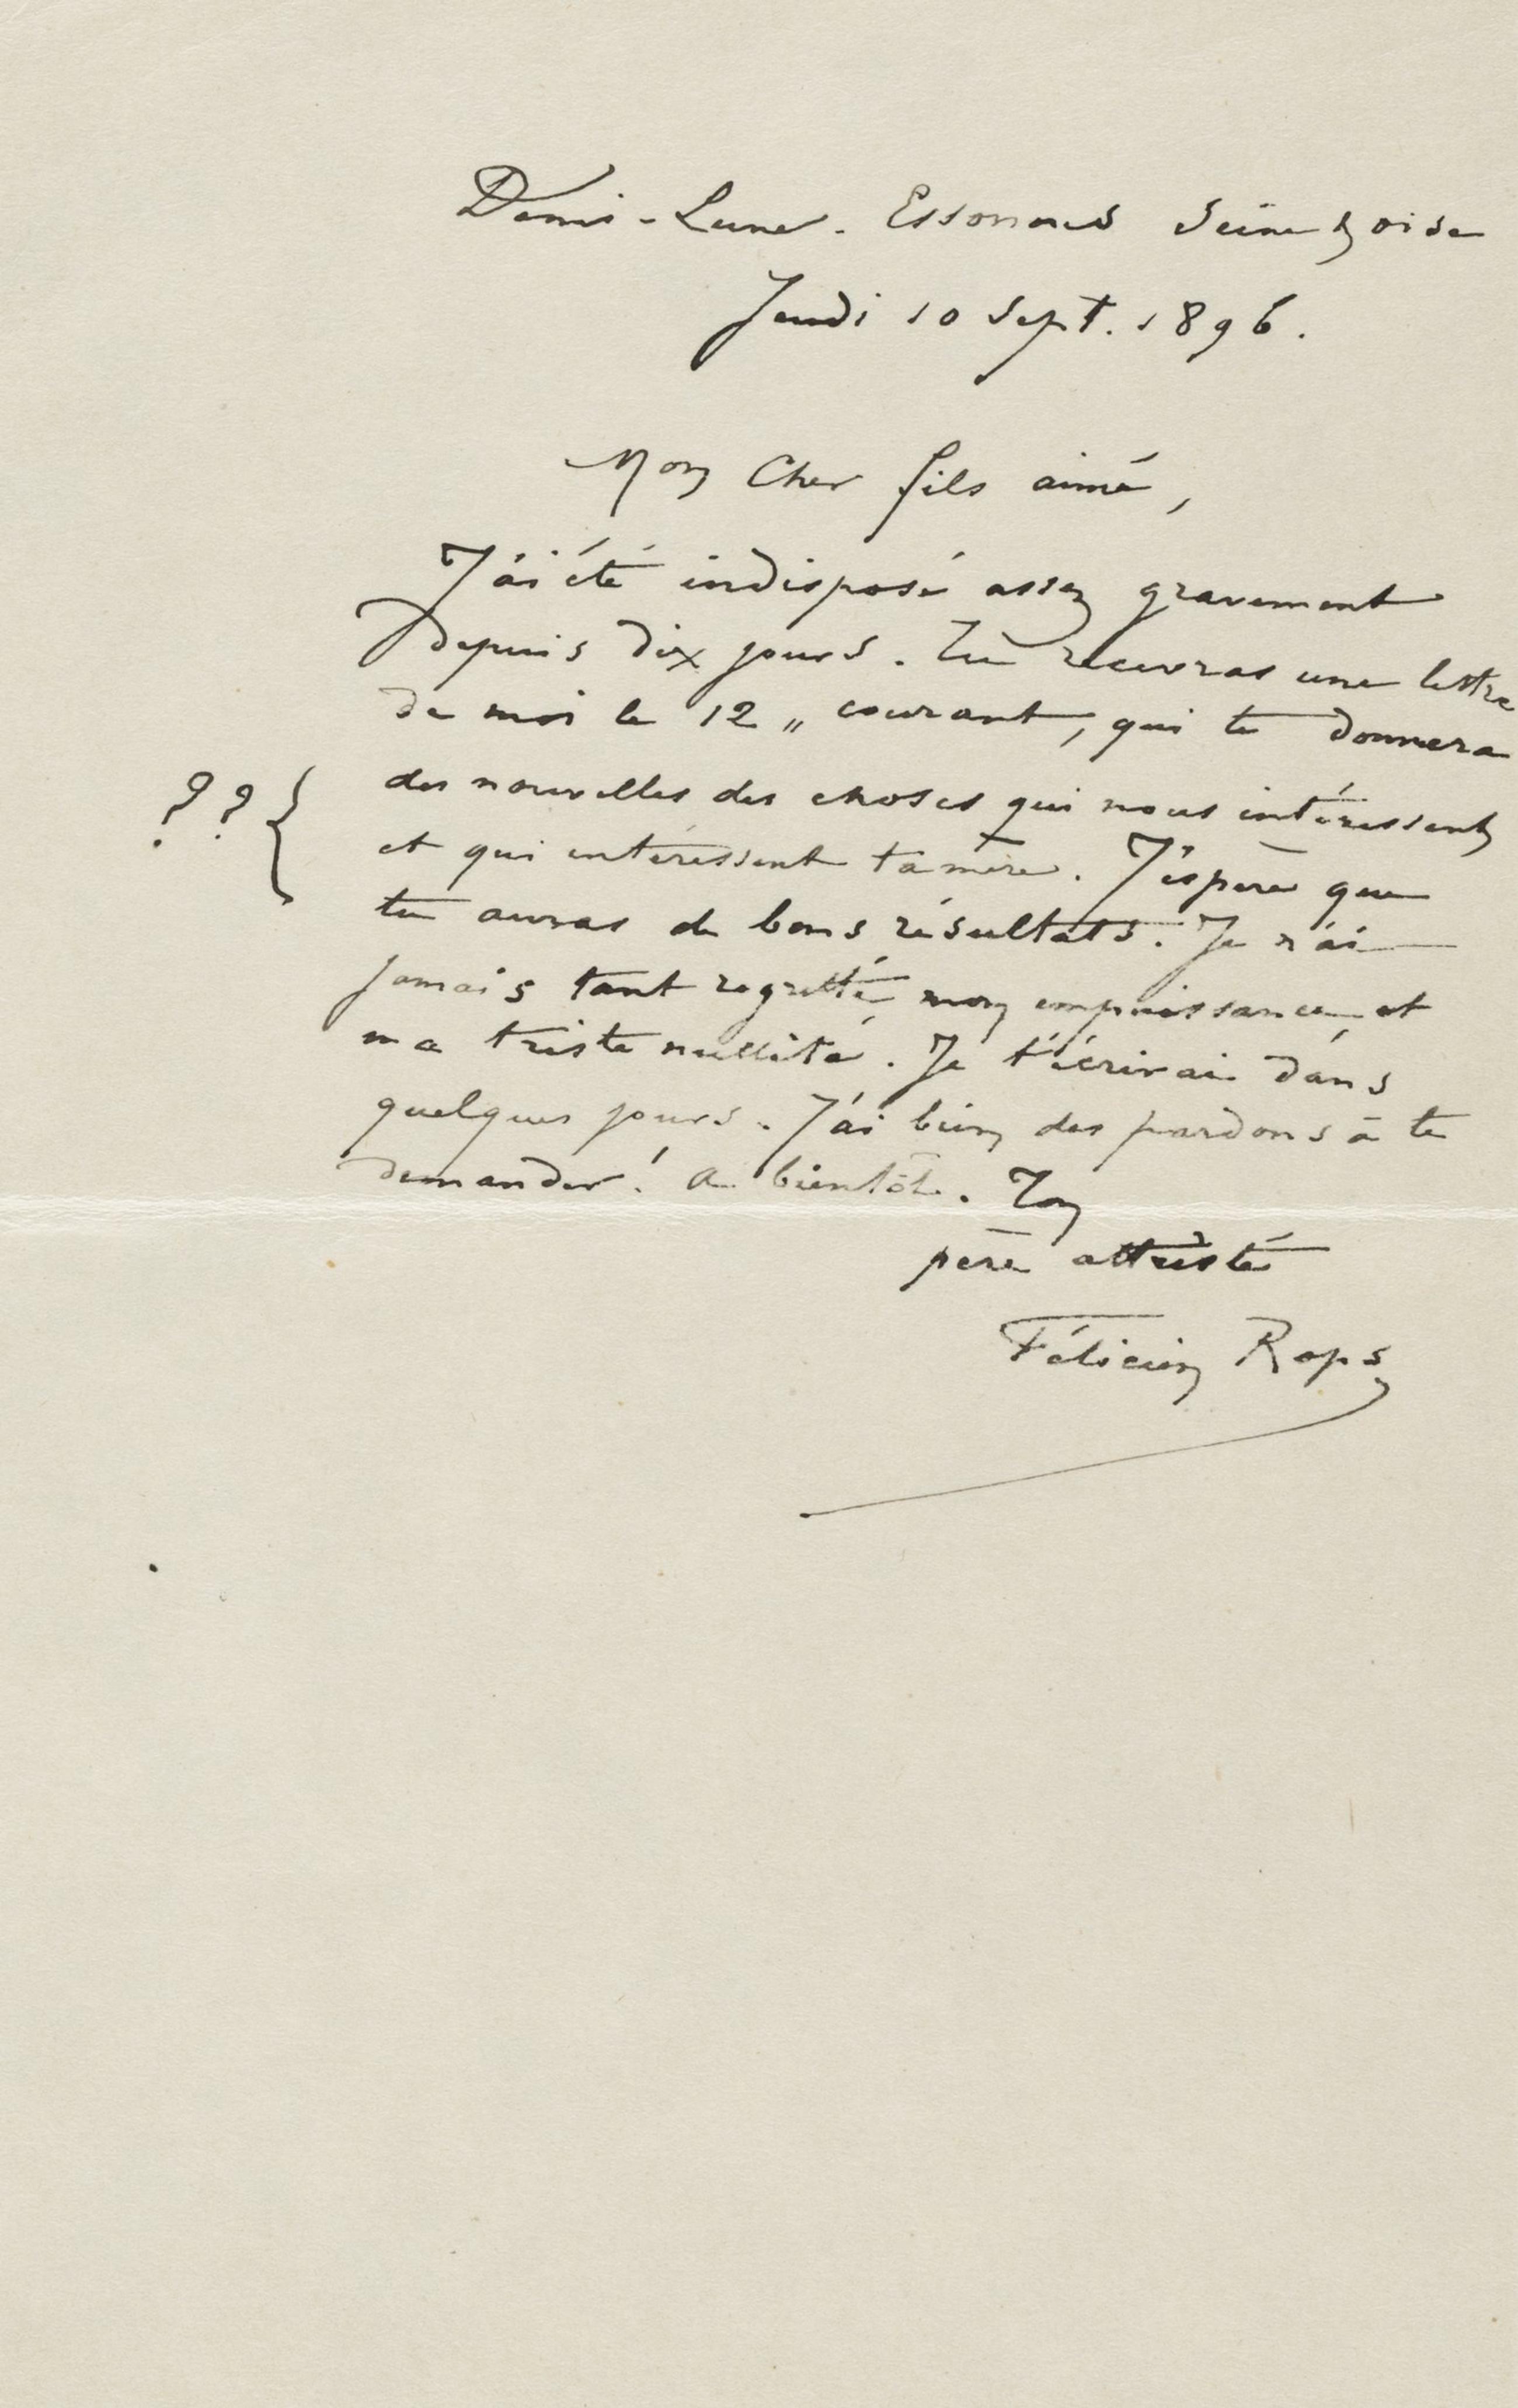 Demi-Lune. Essonnes Seine & Oise
Jeudi 10 Sept. 1896.
Mon Cher fils aimé,
J'ai été indisposé assez gravement
depuis dix jours. Tu recevras une lettre
de moi le 12 " courant, qui te donnera
?? { des nouvelles des choses qui nous intéressent
et qui intéressent ta mère. J'espère que
tu auras de bons résultats. Je n'ai
jamais tant regretté mon impuissance et
ma triste nullité. Je t'écrirai dans
quelques jours. J'ai bien des pardons à te
demander! A bientôt. Ton
père attristé
Félicien Rops